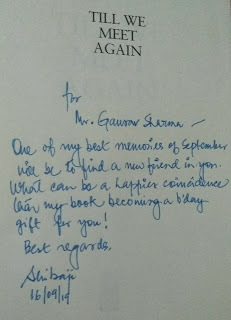 TILL WE
MEET
AGAIN
for
Mr. Gaurav Sharma –
One of my best memories of September
will be to find a new friend in you.
What can be a happier coincidence
than my book becoming a b'day
gift for you!
Best regards,
Shibaji
16/09/19